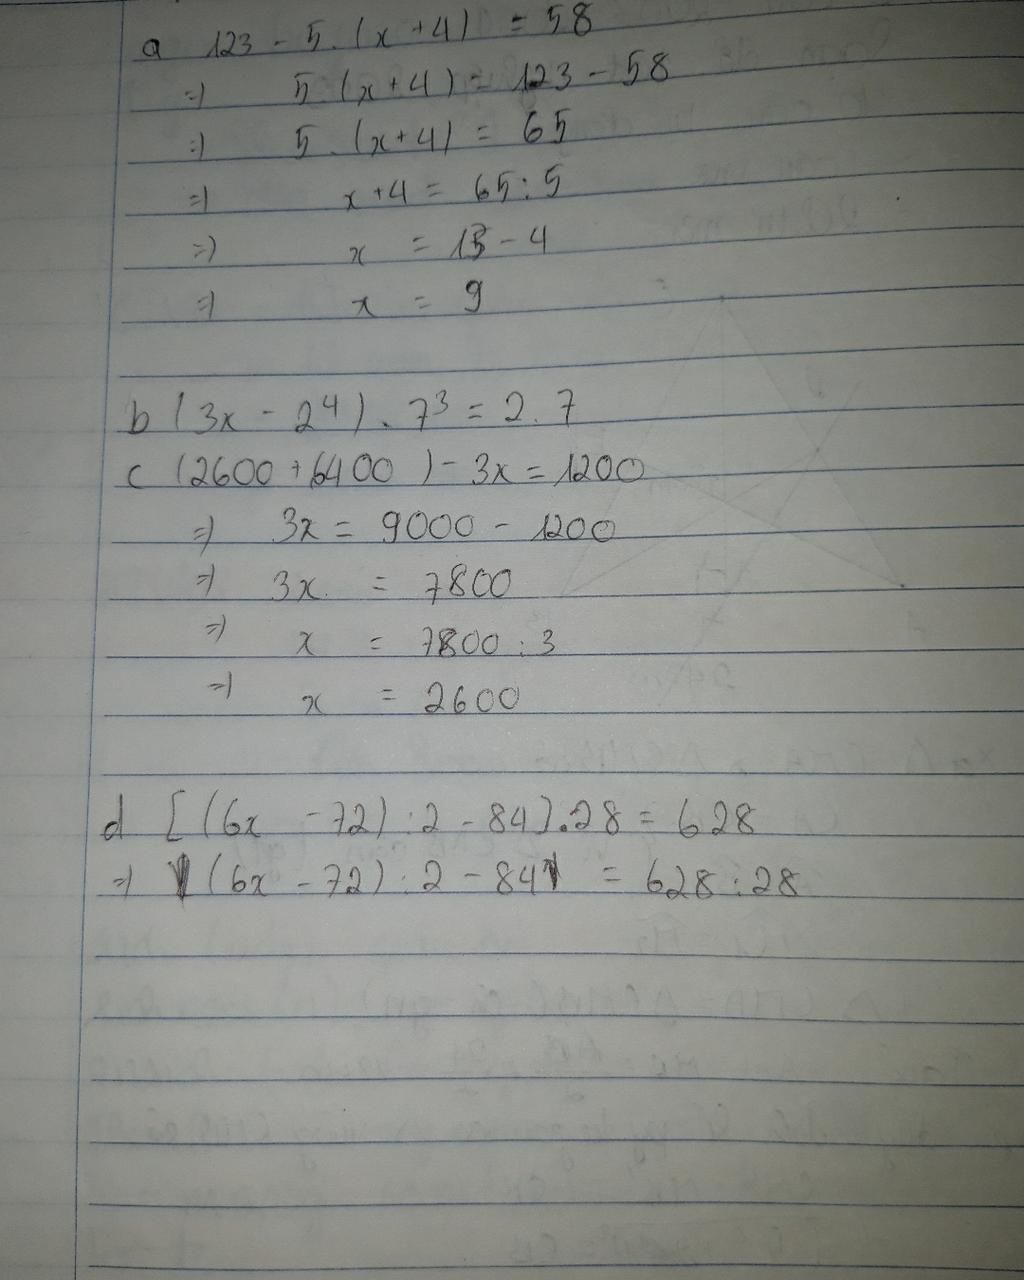 a 123 - 5. (x + 4) = 58
=) 5. (x+4) = 123 - 58
=) 5. (x+4) = 65
=) x+4 = 65 : 5
=) x = 13 - 4
=) x = 9
b (3x - 2⁴) . 7³ = 2. 7
c (2600 + 6400) - 3x = 1200
=) 3x = 9000 - 1200
=) 3x = 7800
=) x = 7800 : 3
=) x = 2600
d [(6x - 72) : 2 - 84] . 28 = 628
=) (6x - 72) : 2 - 84 = 628 : 28